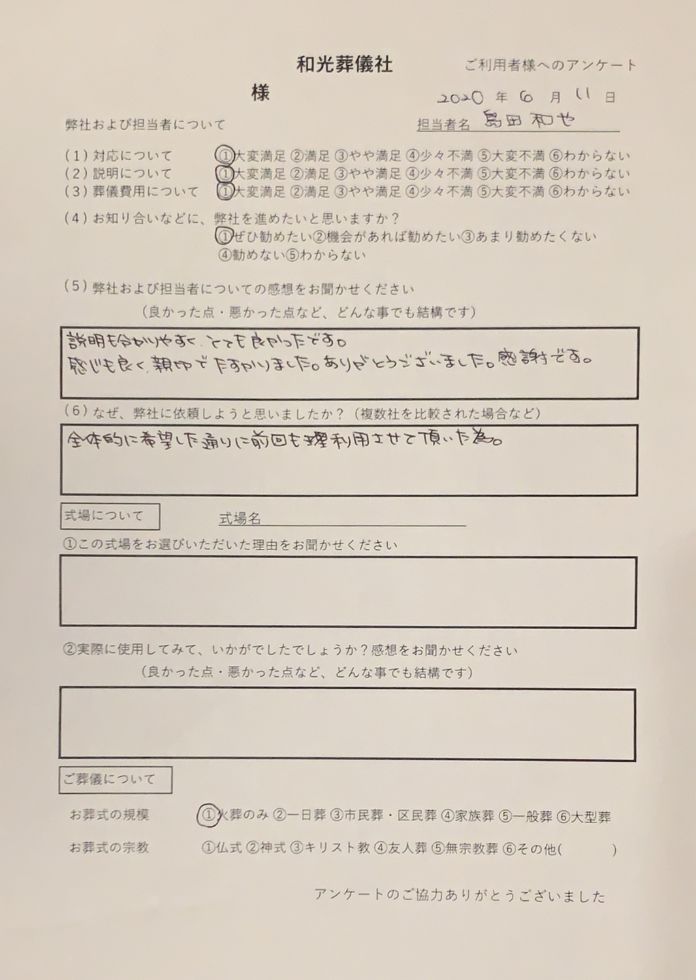 和光葬儀社
ご利用者様へのアンケート
様
2020 年 6 月 11 日
弊社および担当者について
担当者名 島田 和也
(1) 対応について ①大変満足 ②満足 ③やや満足 ④少々不満 ⑤大変不満 ⑥わからない
(2) 説明について ①大変満足 ②満足 ③やや満足 ④少々不満 ⑤大変不満 ⑥わからない
(3) 葬儀費用について ①大変満足 ②満足 ③やや満足 ④少々不満 ⑤大変不満 ⑥わからない
(4) お知り合いなどに、弊社を進めたいと思いますか？
①ぜひ勧めたい②機会があれば勧めたい③あまり勧めたくない
④勧めない⑤わからない
(5) 弊社および担当者についての感想をお聞かせください
（良かった点・悪かった点など、どんな事でも結構です）
説明も分かりやすく、とても良かったです。
感じも良く、親切でたすかりました。ありがとうございました。感謝です。
(6) なぜ、弊社に依頼しようと思いましたか？（複数社を比較された場合など）
全体的に希望した通りに前回も利用させて頂いた為。
式場について
式場名
①この式場をお選びいただいた理由をお聞かせください
②実際に使用してみて、いかがでしたでしょうか？感想をお聞かせください
（良かった点・悪かった点など、どんな事でも結構です）
ご葬儀について
お葬式の規模 ①火葬のみ ②一日葬 ③市民葬・区民葬 ④家族葬 ⑤一般葬 ⑥大型葬
お葬式の宗教 ①仏式 ②神式 ③キリスト教 ④友人葬 ⑤無宗教葬 ⑥その他( )
アンケートのご協力ありがとうございました